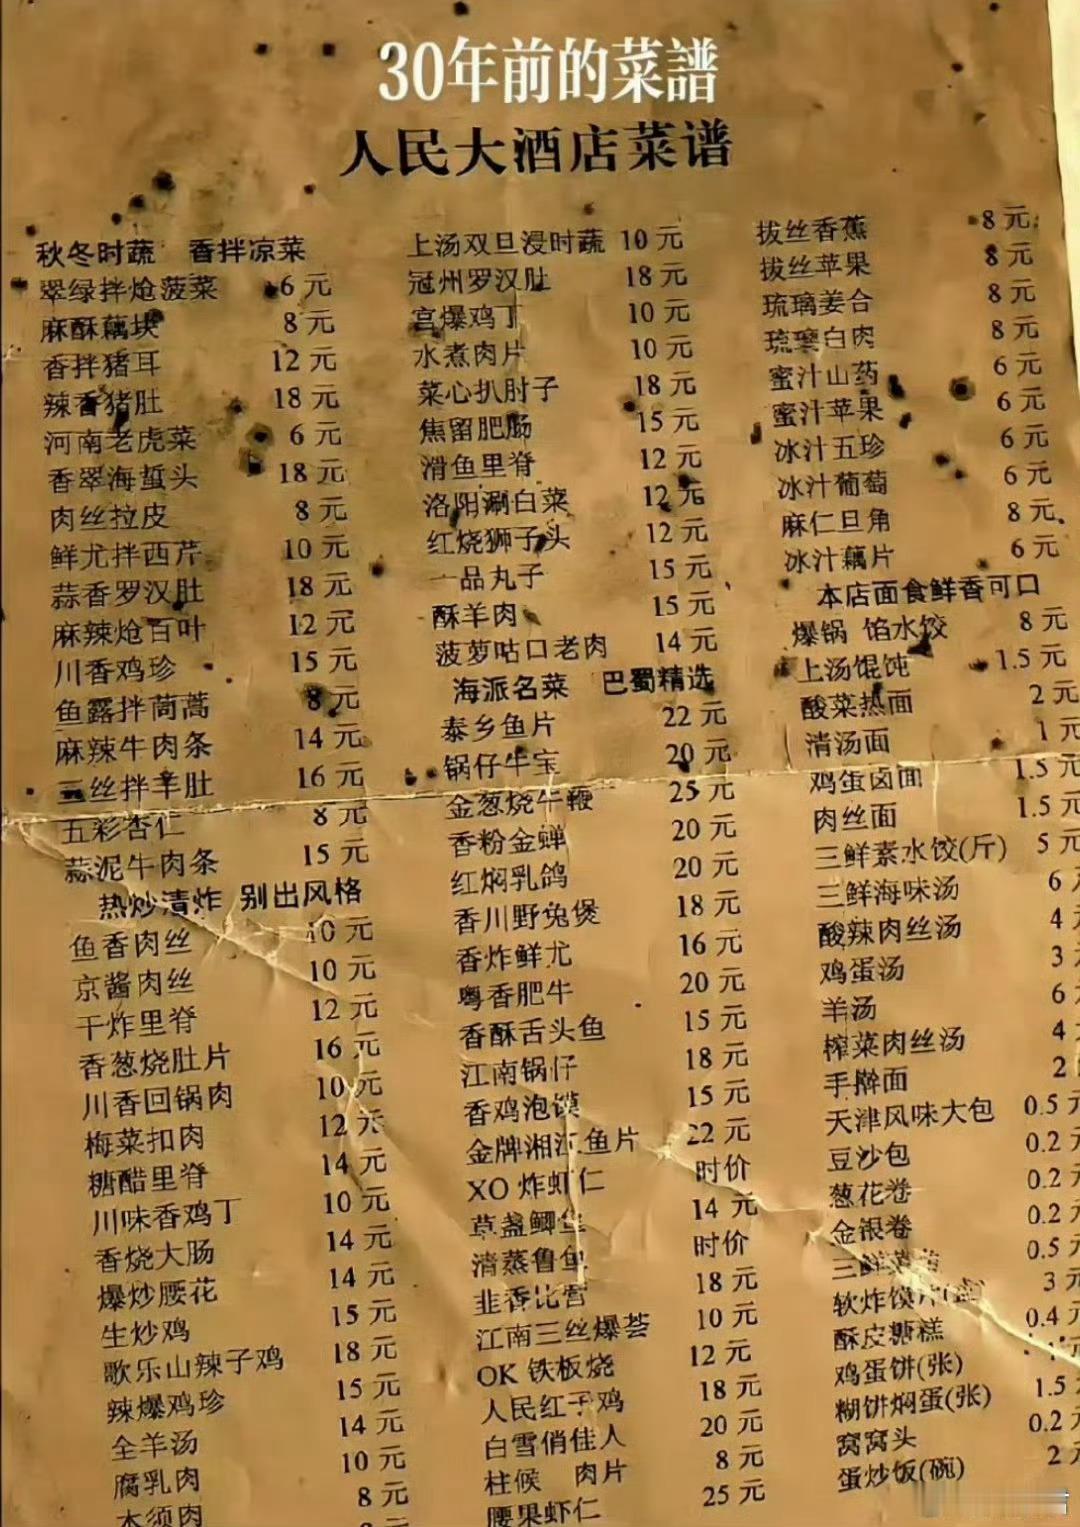 30年前的菜譜
人民大酒店菜谱
秋冬时蔬 香拌凉菜
翠绿拌炝菠菜 6元
麻酥藕块 8元
香拌猪耳 12元
辣香猪肚 18元
河南老虎菜 6元
香翠海蜇头 18元
肉丝拉皮 8元
鲜尤拌西芹 10元
蒜香罗汉肚 18元
麻辣炝百叶 12元
川香鸡珍 15元
鱼露拌茼蒿 8元
麻辣牛肉条 14元
三丝拌羊肚 16元
五彩杏仁 8元
蒜泥牛肉条 15元
热炒清炸 别出风格
鱼香肉丝 10元
京酱肉丝 10元
干炸里脊 12元
香葱烧肚片 16元
川香回锅肉 10元
梅菜扣肉 12元
糖醋里脊 14元
川味香鸡丁 10元
香烧大肠 14元
爆炒腰花 14元
生炒鸡 15元
歌乐山辣子鸡 18元
辣爆鸡珍 15元
全羊汤 14元
腐乳肉 10元
木须肉 8元
上汤双旦浸时蔬 10元
冠州罗汉肚 18元
宫爆鸡丁 10元
水煮肉片 10元
菜心扒肘子 18元
焦留肥肠 15元
滑鱼里脊 12元
洛阳涮白菜 12元
红烧狮子头 12元
一品丸子 15元
酥羊肉 15元
菠萝咕口老肉 14元
海派名菜 巴蜀精选
泰乡鱼片 22元
锅仔牛宝 20元
金葱烧牛鞭 25元
香粉金蝉 20元
红焖乳鸽 20元
香川野兔煲 18元
香炸鲜尤 16元
粤香肥牛 20元
香酥舌头鱼 15元
江南锅仔 18元
香鸡泡馍 15元
金牌湘江鱼片 22元
XO 炸虾仁 时价
草盏鲫鱼 14元
清蒸鲁鱼 时价
韭香比管 18元
江南三丝爆荟 10元
OK 铁板烧 12元
人民红子鸡 18元
白雪俏佳人 20元
柱候 肉片 8元
腰果虾仁 25元
拔丝香蕉 8元
拔丝苹果 8元
琉璃姜合 8元
琉璃白肉 8元
蜜汁山药 6元
蜜汁苹果 6元
冰汁五珍 6元
冰汁葡萄 6元
麻仁旦角 8元
冰汁藕片 6元
本店面食鲜香可口
爆锅 馅水饺 8元
上汤馄饨 1.5元
酸菜热面 2元
清汤面 1元
鸡蛋卤面 1.5元
肉丝面 1.5元
三鲜素水饺(斤) 5元
三鲜海味汤 6
酸辣肉丝汤 4
鸡蛋汤 3
羊汤 6
榨菜肉丝汤 4
手擀面 2
天津风味大包 0.5元
豆沙包 0.2
葱花卷 0.2
金银卷 0.2
三鲜 0.5
软炸馍片(盘) 3元
酥皮糖糕 0.4
鸡蛋饼(张)
糊饼焖蛋(张) 1.5
窝窝头 0.2
蛋炒饭(碗) 2